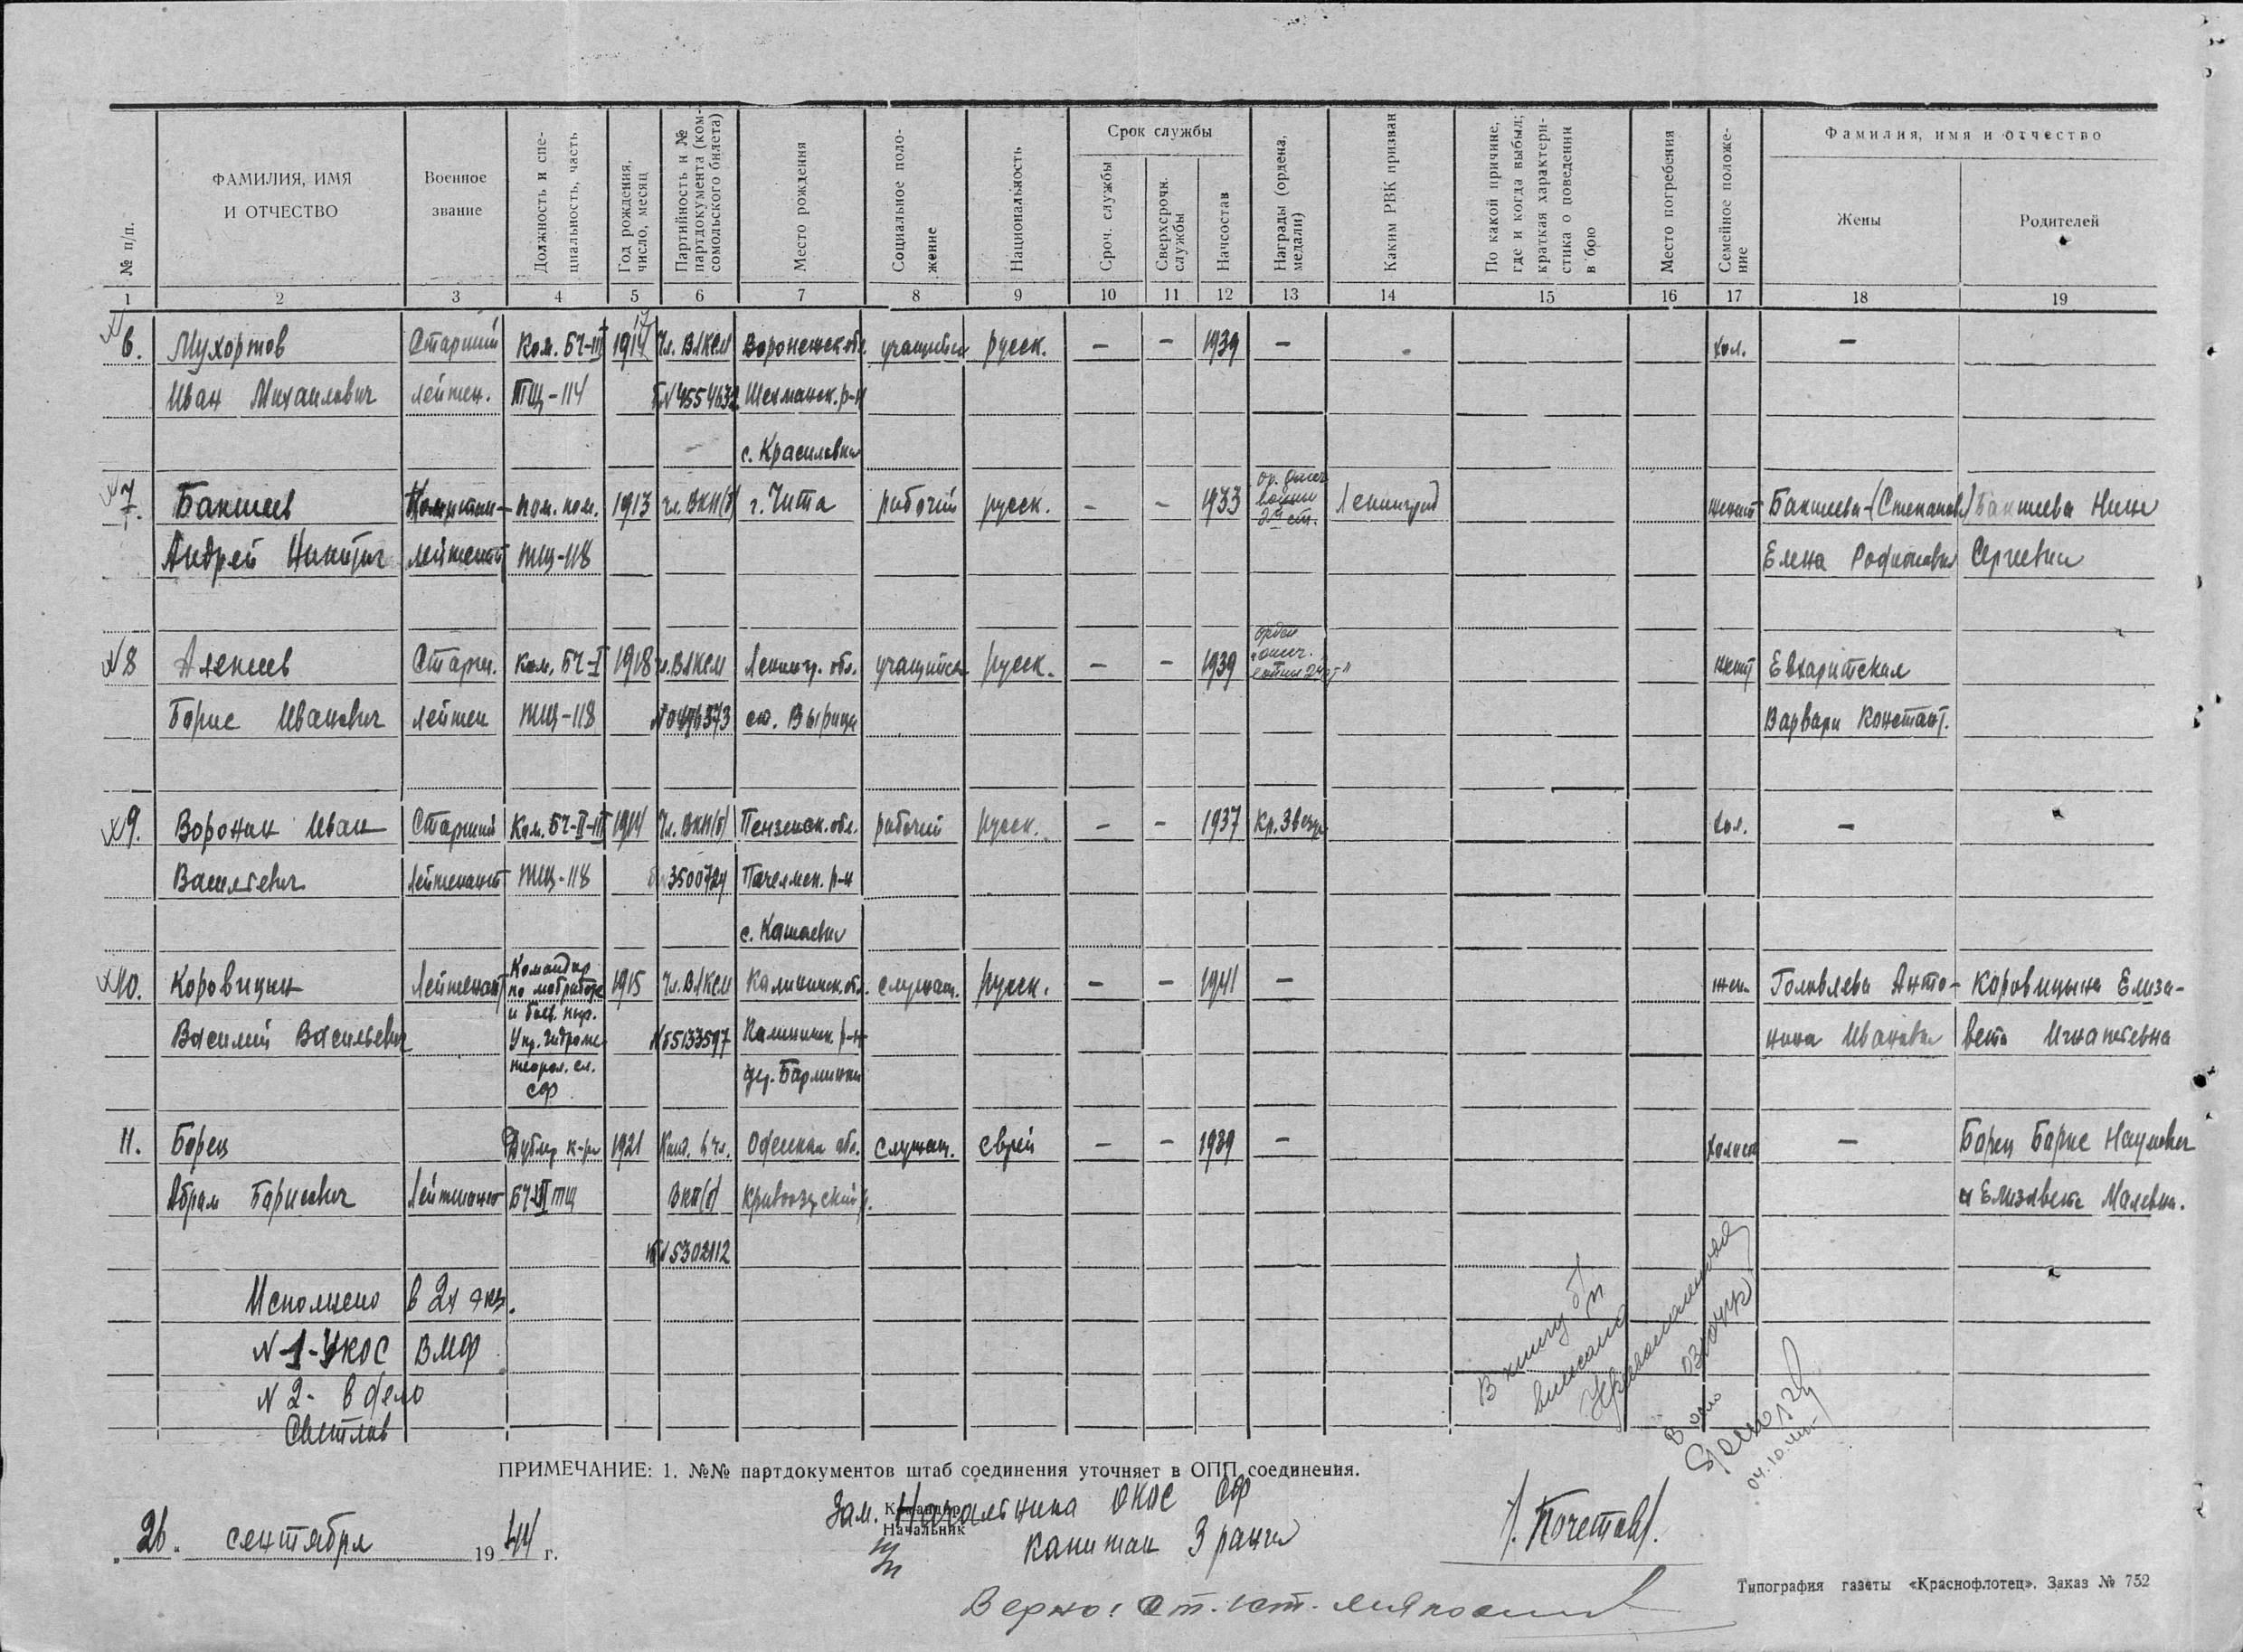 № п/п.
ФАМИЛИЯ, ИМЯ
И ОТЧЕСТВО
Военное
звание
Должность и спе-
циальность, часть
Год рождения,
число, месяц
Партийность и №
партдокумента (ком-
сомольского билета)
Место рождения
Социальное поло-
жение
Национальность
Срок службы
Сроч. службы
Сверхсрочн.
службы
Начсостав
Награды (ордена,
медали)
Каким РВК призван
По какой причине,
где и когда выбыл;
краткая характери-
стика о поведении
в бою
Место погребения
Семейное положе-
ние
Фамилия, имя и отчество
Жены
Родителей
1 2 3 4 5 6 7 8 9 10 11 12 13 14 15 16 17 18 19
6. Мухортов Старший Ком. БЧ-III 1917 Чл. ВЛКСМ Воронежск. обл. учащийся русск. — — 1939 — хол. —
Иван Михаилович лейтен. ТЩ-114 Б№4554632 Шехманск. р-н
с. Красиловка
7. Бакшеев лейтенант пом. ком. 1913 чл. ВКП(б) г. Чита рабочий русск. - - 1933 ор. Отеч. войны 2й ст. Ленинград женат Бакшеева-(Степанова) Бакшеева Нина
Андрей Никитич ТЩ-118 Елена Родионовна Сергеевна
№8 Алексеев Старш. Ком. БЧ-I 1918 чл. ВЛКСМ Ленингр. обл. учащийся русск. — — 1939 орден „отеч. войны 2й ст" женат Евхаритская
Борис Иванович лейтен ТЩ-118 ст. Вырица Варвара Констант.
9. Воронин Иван Старший Ком. БЧ-II-III 1914 Чл. ВКП(б) Пензенск. обл. рабочий русск. — — 1937 Кр. Звезда хол. —
Васильевич лейтенант ТЩ-118 3500724 Пачелмск. р-н
с. Каташевка
10. Коровицын Лейтенант Командир по мобработе 1915 Чл. ВЛКСМ Калининск. обл. служащ. русск. — — 1941 — жен. Головлева Анто- Коровицына Елиза-
Василий Васильевич Упр. Гидроме- теорол. сл. СФ №5133597 Калининск. р-н нина Ивановна вета Игнатьевна
дер. Бармино
11. Борец Дублер к-ра 1921 Канд. в чл. Одесская обл. Служащ. еврей — — 1939 — холост — Борец Борис Наумович
Абрам Борисович Лейтенант БЧ-III ТЩ ВКП(б) Кривоозерский р. и Елизавета
№5302112
Исполнено в 2х экз.
№1-УКОС ВМФ
№2- в дело
Светлов
В книгу б/п
вписано
В дело
04.10.44г
ПРИМЕЧАНИЕ: 1. №№ партдокументов штаб соединения уточняет в ОПП соединения.
„26" сентября 1944 г.
Зам. Начальника ОКОС СФ
Командир
Начальник
п/п
капитан 3 ранга
/. Почетов/.
Верно: ст. лт.
Типография газеты «Краснофлотец». Заказ № 752